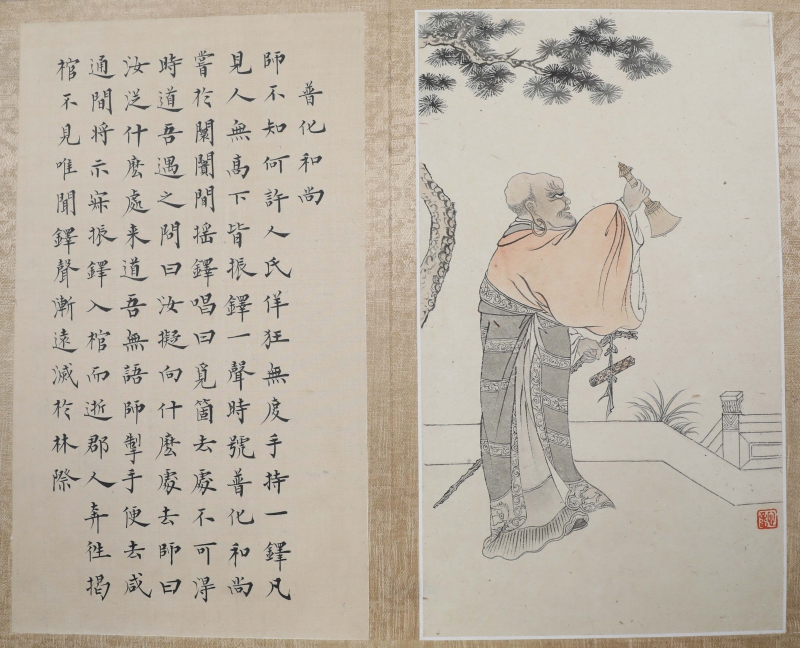 普化和尚
師不知何許人氏佯狂無度手持一鐸凡
見人無高下皆振鐸一聲時號普化和尚
嘗於闤闠間搖鐸唱曰覓箇去處不可得
時道吾遇之問曰汝擬向什麼處去師曰
汝従什麼處来道吾無語師掣手便去咸
通間將示寂振鐸入棺而逝郡人奔徃揭
棺不見唯聞鐸聲漸遠滅於林際